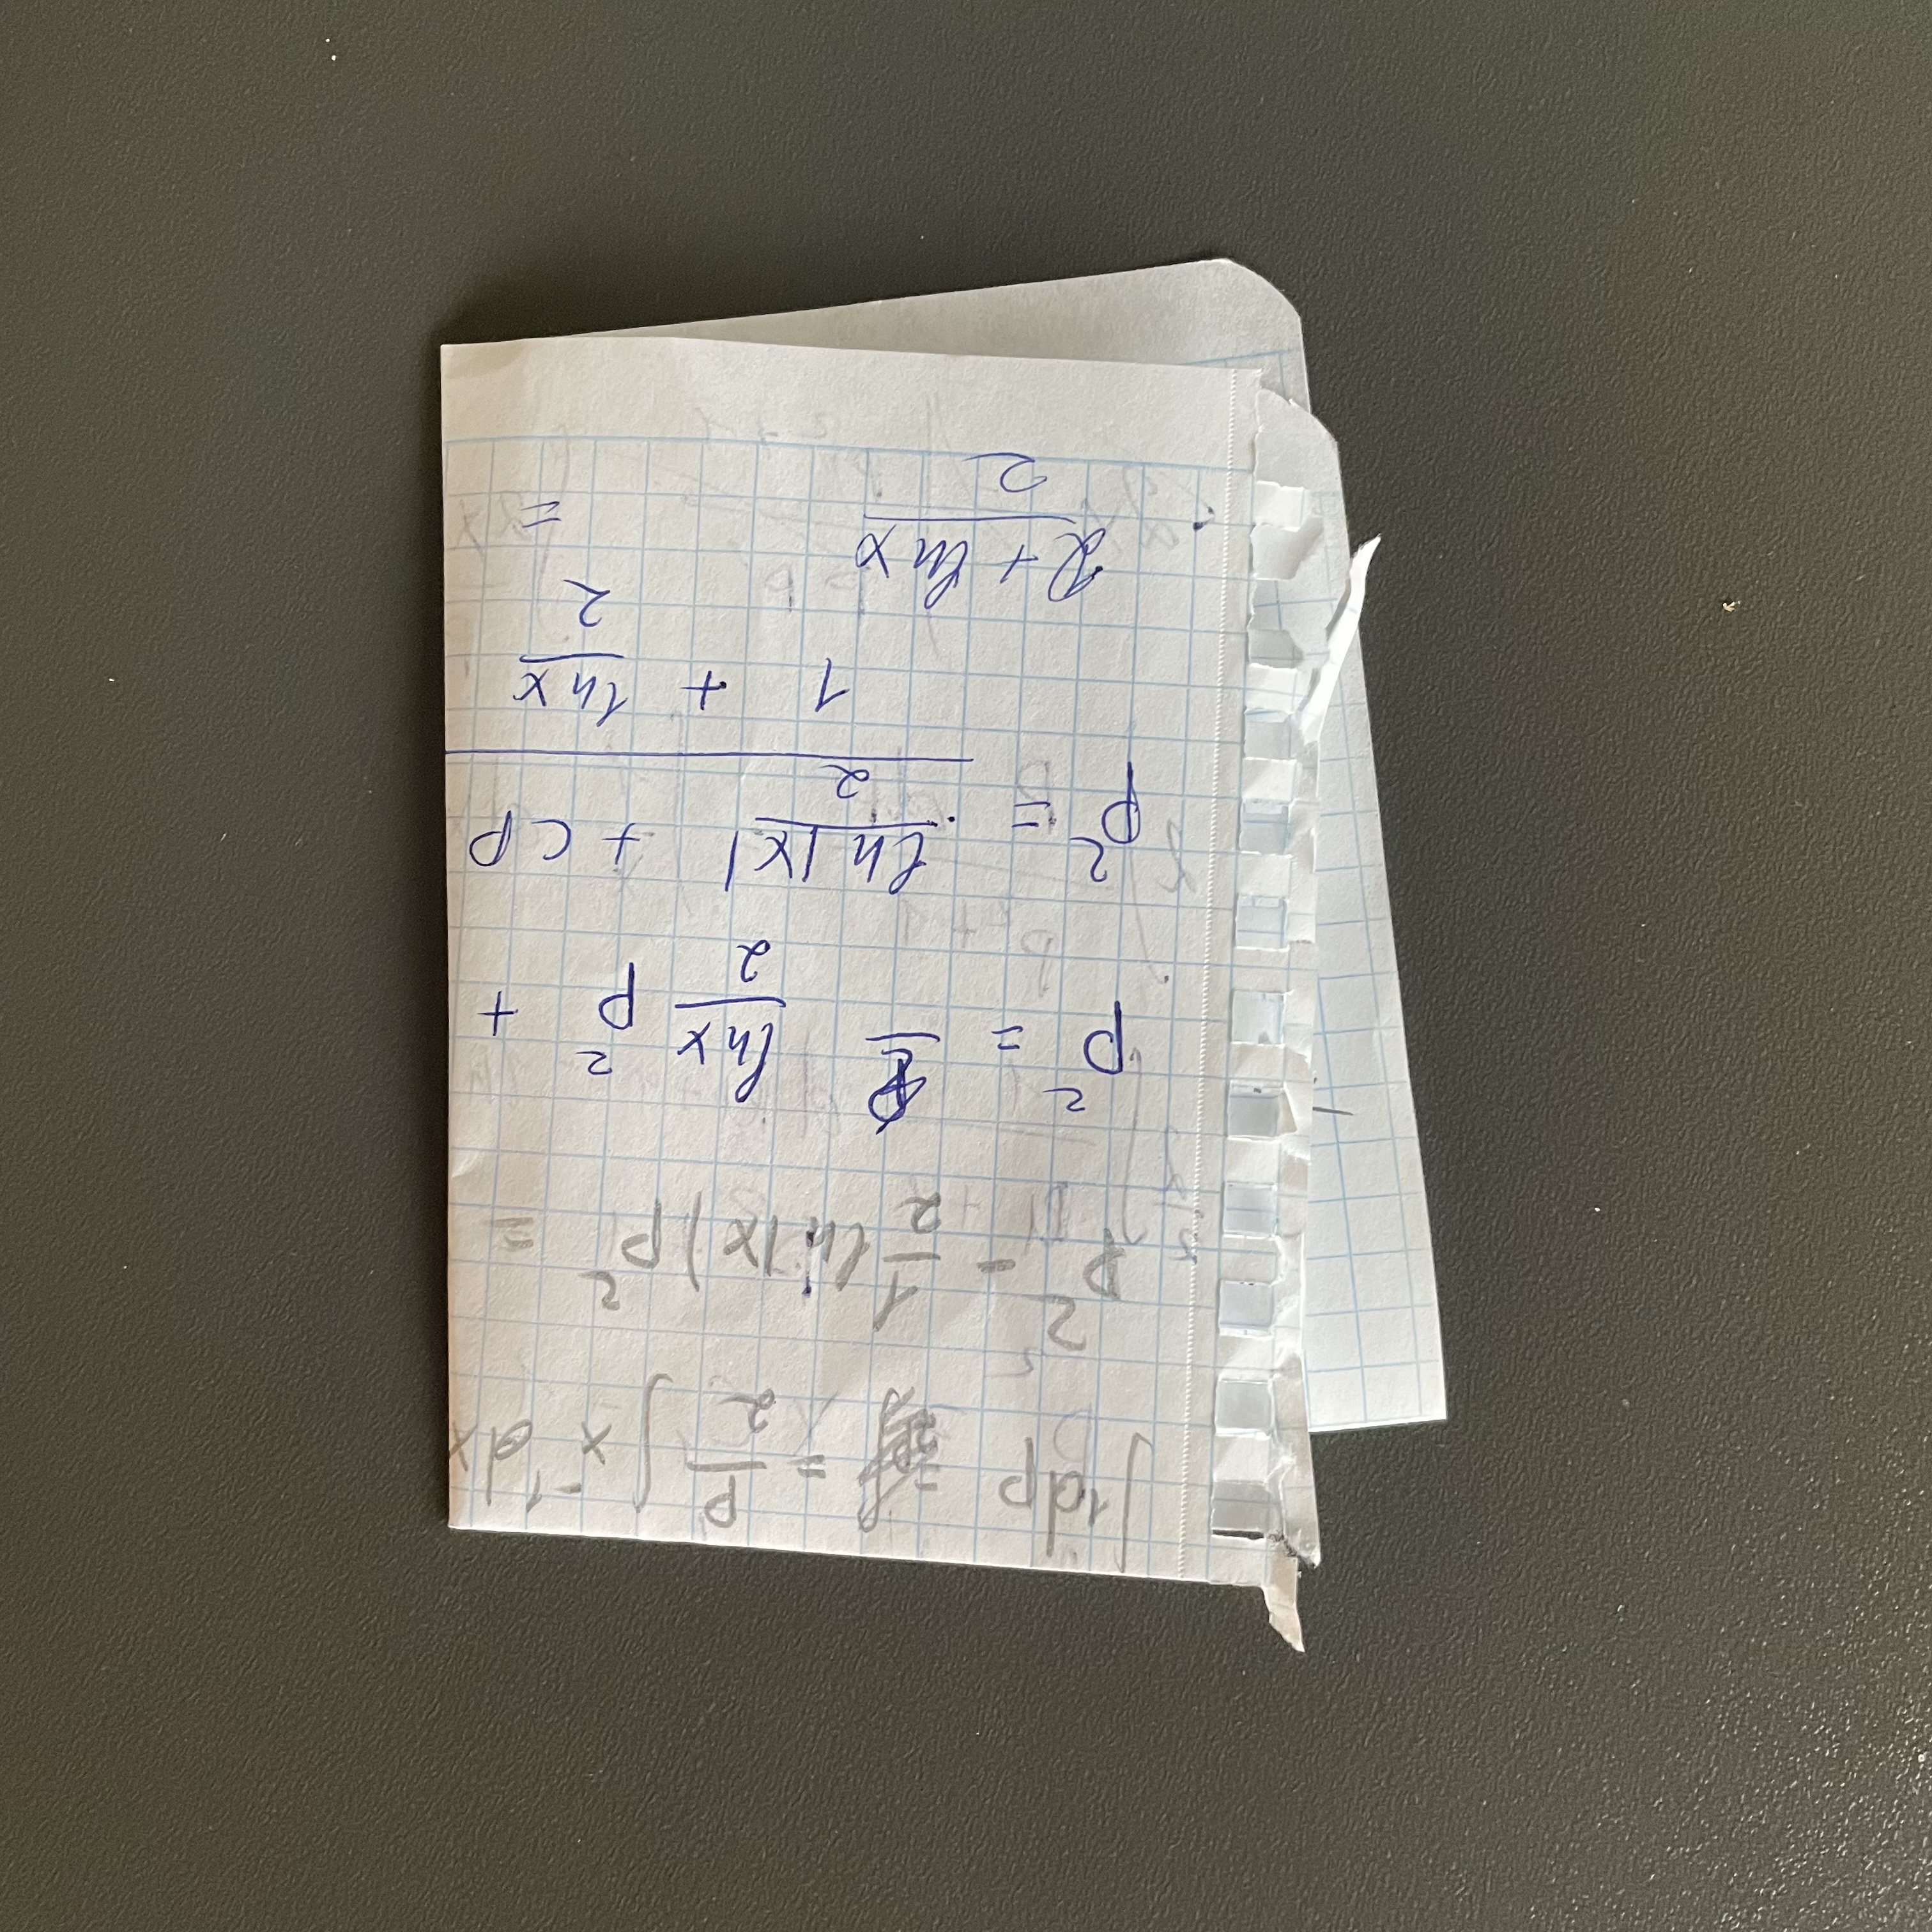 ∫1dp = = p/2 ∫x⁻¹dx
p² - 1/2 ln|x|p² =
p² = lnx/2 p² +
p² = ln|x|/2 + cp
1 + lnx/2
2+lnx/2 =